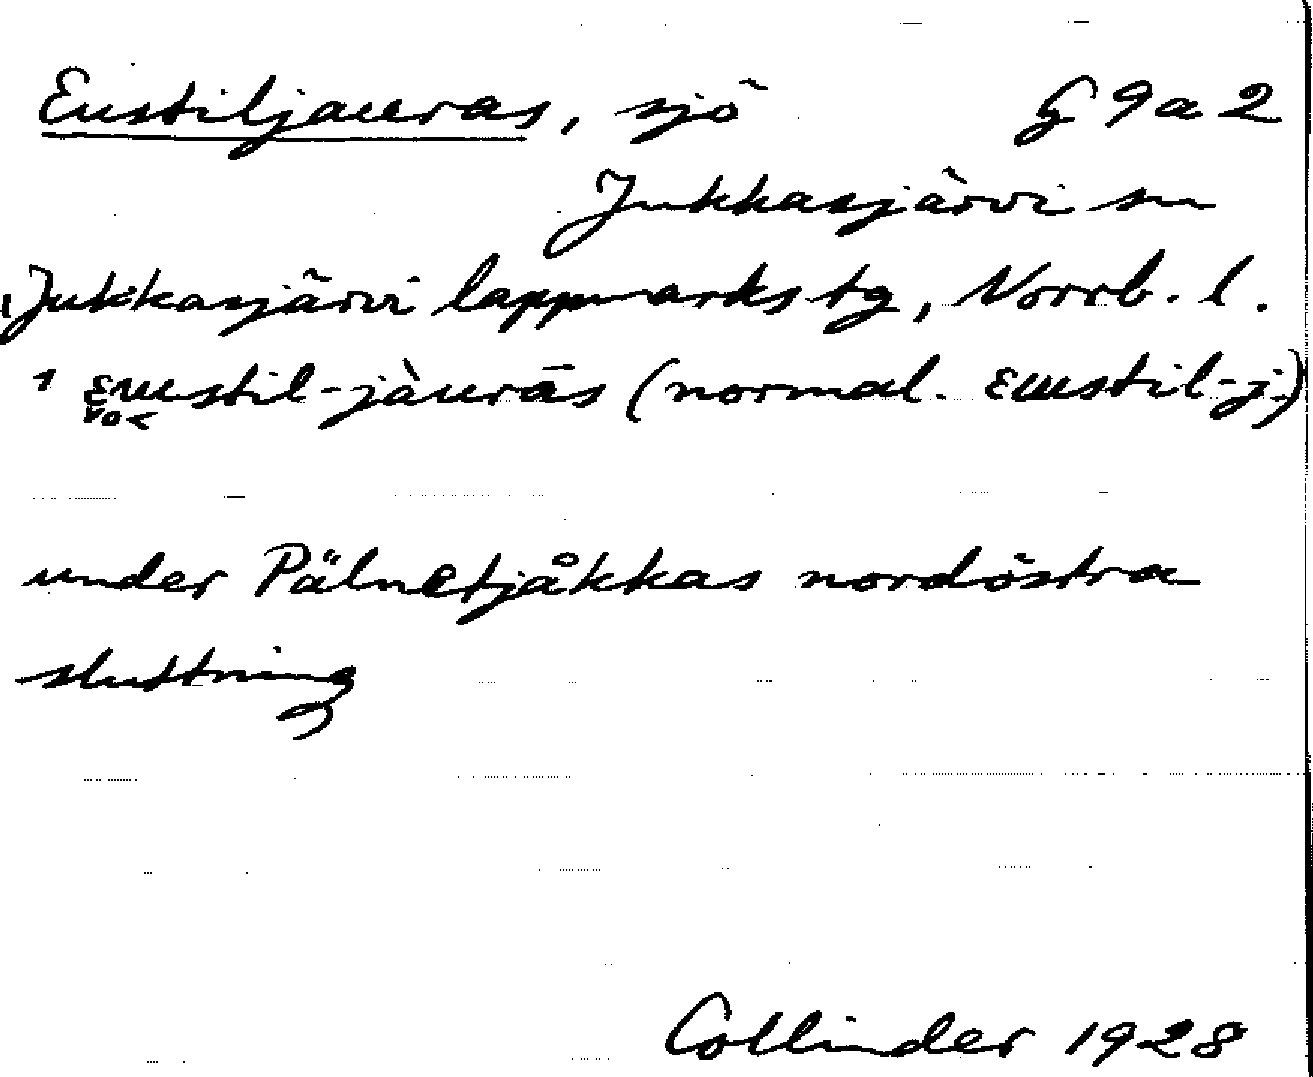 Eustiljauras, sjö G 9 a 2
Jukkasjärvi sn
Jukkasjärvi lappmarks tg, Norrb. l.
1 ɛɯstil-jàurās (normal. ɛɯstil-j.)
under Pälnetjåkkas nordöstra
sluttning
Collinder 1928